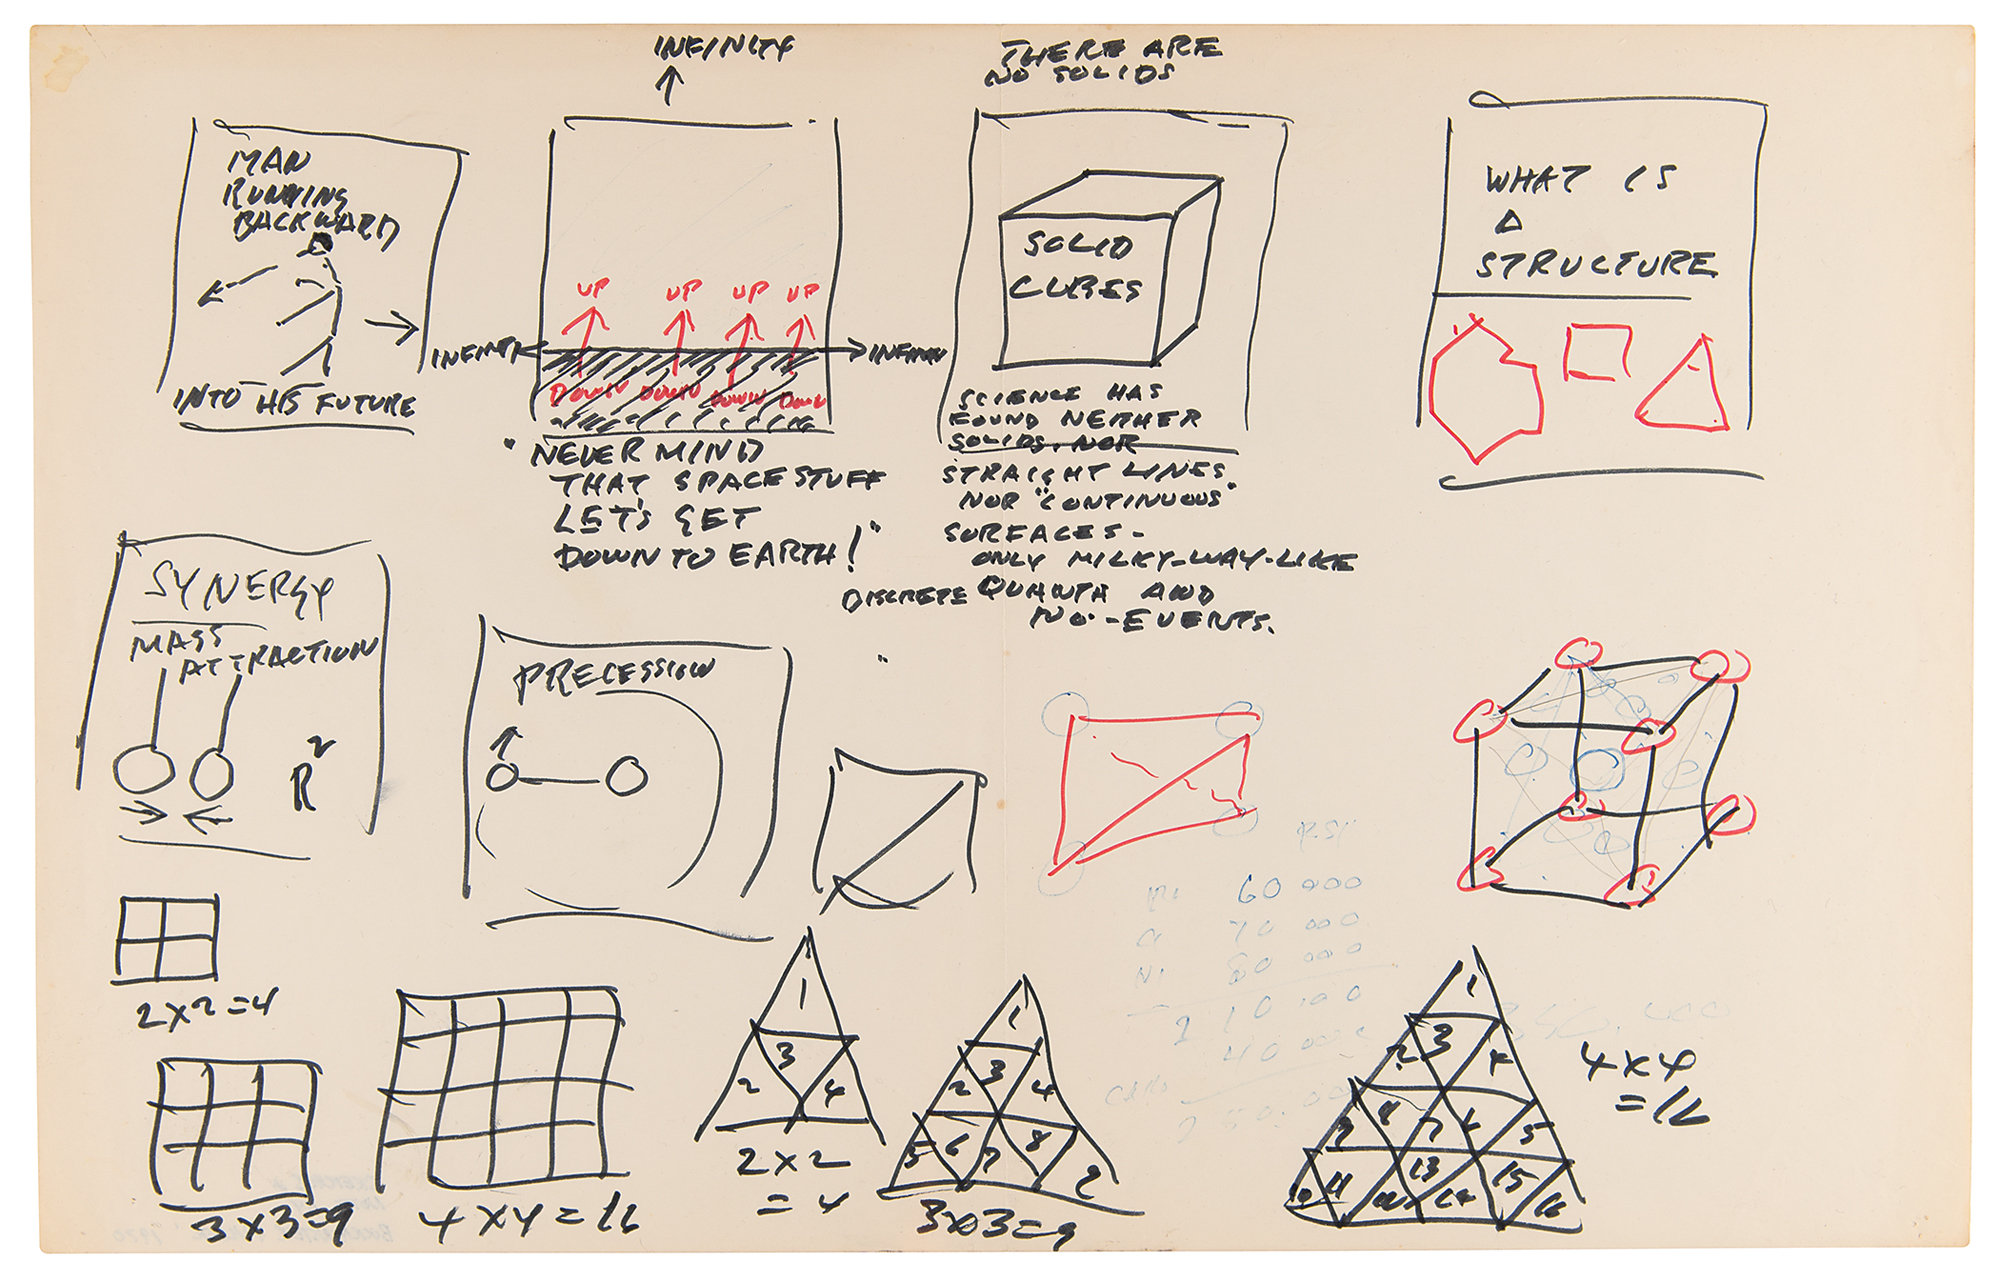 INFINITY
THERE ARE
NO SOLIDS
MAN
RUNNING
BACKWARD
INTO HIS FUTURE
UP UP UP UP
INFINITY
INFINITY
DOWN DOWN DOWN DOWN
"NEVER MIND
THAT SPACE STUFF
LET'S GET
DOWN TO EARTH!"
SOLID
CUBES
SCIENCE HAS
FOUND NEITHER
SOLIDS, NOR
STRAIGHT LINES
NOR "CONTINUOUS"
SURFACES -
ONLY MILKY-WAY-LIKE
DISCRETE QUANTA AND
NO-EVENTS.
WHAT IS
A
STRUCTURE
SYNERGY
MASS
ATTRACTION
R2
PRECESSION
60 000
70 000
80 000
2x2=4
3x3=9
4x4=16
1
3
2 4
2x2
=4
1
2 3 4
5 6 7 8 9
3x3=9
1
2 3 4
9 7 5
11 13 15 16
4x4
=16